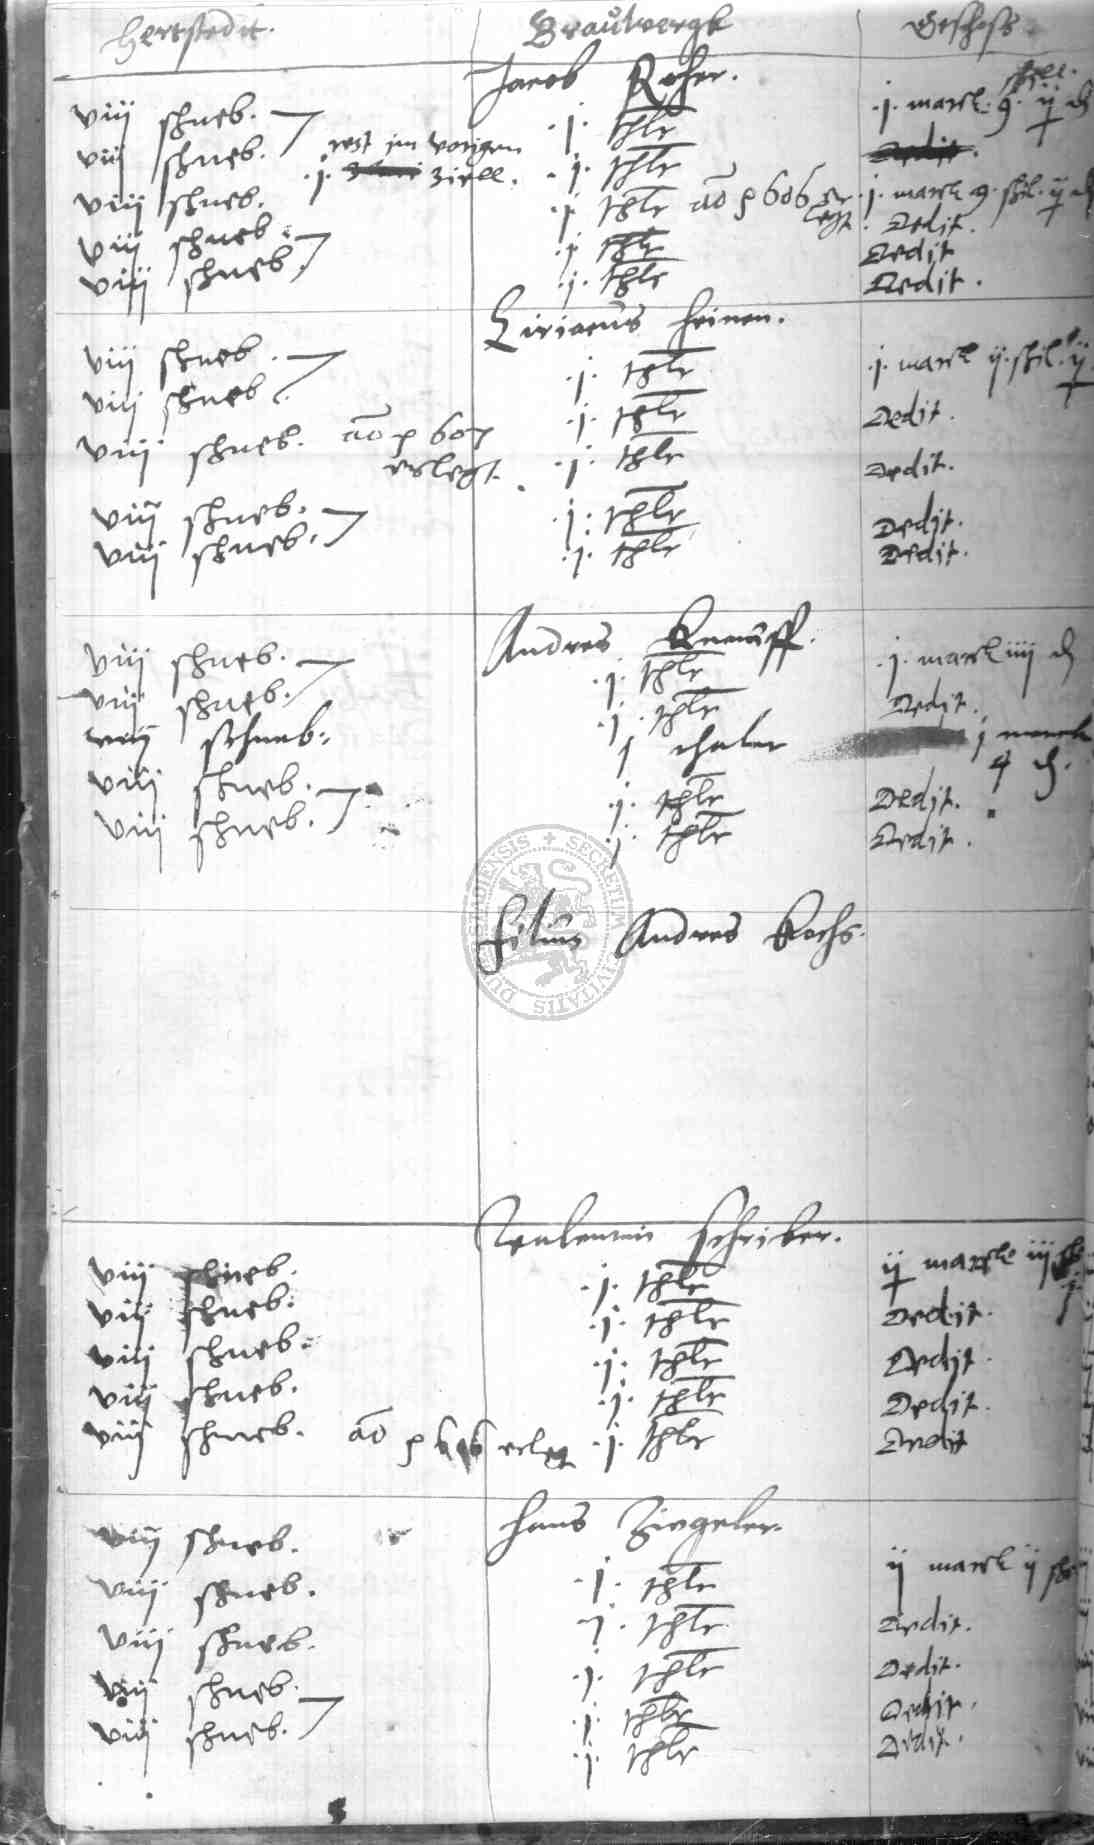 Herstedt. Brauwergk Geschoss
Jacob Koher.
viij schneb. j. thlr j. marck. 9. schill. ij ₰
viij schneb. rest im vorigen j. thlr
viij schneb. .j. ziell. j thlr aō 1606 erlegt. j. marck 9. schil. ij ₰
Dedit.
viij schneb. j thlr Dedit
viij schneb. j. thlr Dedit.
Ciriacus Heinen.
viij schneb. j. thlr j. marck ij. schil. ij
viij schneb. j. thlr Dedit.
viij schneb. aō 1607 erlegt. j. thlr Dedit.
viij schneb. j. thlr Dedit.
viij schneb. j. thlr Dedit.
Andres Knauff.
viij schneb. j. thlr j. marck iiij ₰
viij schneb. j. thlr Dedit.
viij schneb. j thaler j marck
4 ₰.
viij schneb. j. thlr Dedit.
viij schneb. j. thlr Dedit.
SECRETUM CIVITATIS
Filius Andres Kochs.
Valentin Schriber.
viij schneb. j. thlr ij marck iij
viij schneb. j. thlr Dedit.
viij schneb. j. thlr Dedit.
viij schneb. j. thlr Dedit.
viij schneb. aō 1606 erlegt j. thlr Dedit
Hans Ziegeler.
viij schneb. j. thlr ij marck ij
viij schneb. j. thlr Dedit.
viij schneb. j. thlr Dedit.
viij schneb. j. thlr Dedit.
viij schneb. j. thlr Dedit.